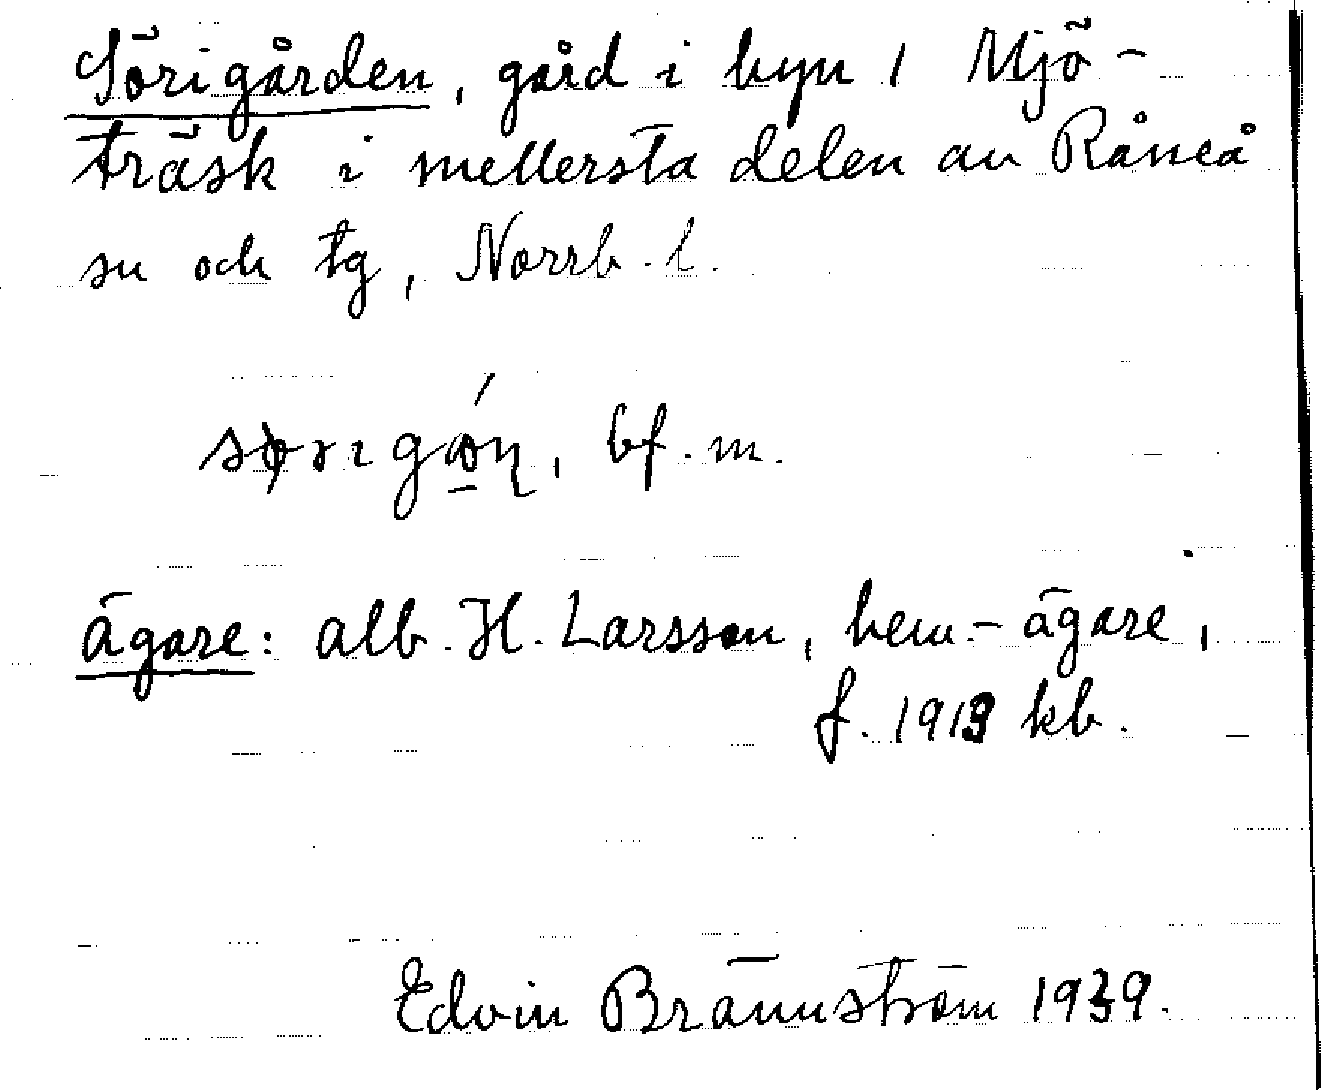 Sörigården, gård i byn / Mjö-
träsk i mellersta delen av Råneå
sn och tg, Norrb. l.
bf. m.
ägare: alb. H. Larsson, hem.-ägare,
f. 1919 kb.
Edvin Brännström 1939.